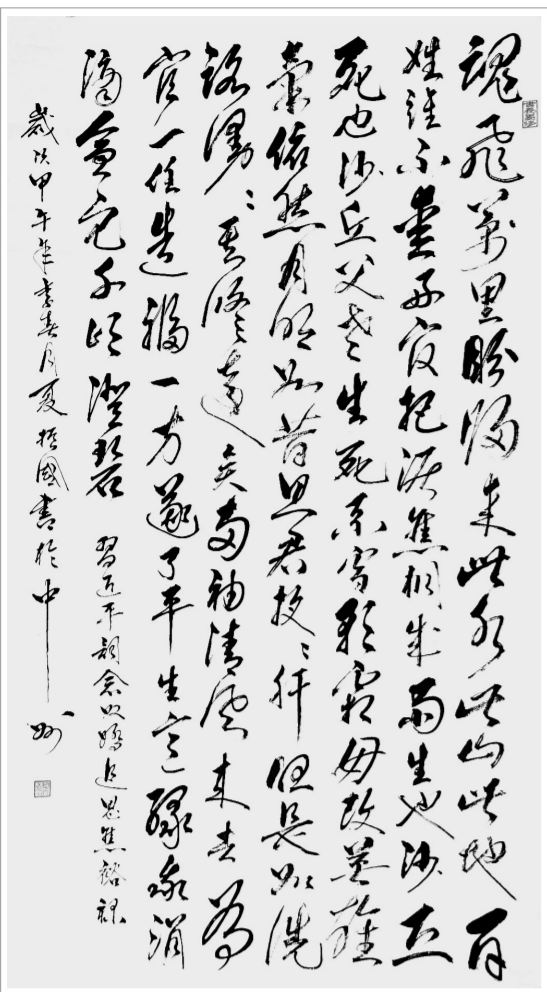 魂飛萬里盼歸來此水此山此地百
姓誰不愛好官把淚焦桐成雨生也沙丘
死也沙丘父老生死系霜毋改英雄
意氣依然月明如昔思君夜夜肝胆長如洗
路漫漫其修遠矣兩袖清風來去為
官一任造福一方遂了平生意綠我涓
滴會它千頃澄碧 習近平詞念奴嬌追思焦裕祿
歲次甲午年季春月夏振國書於中州